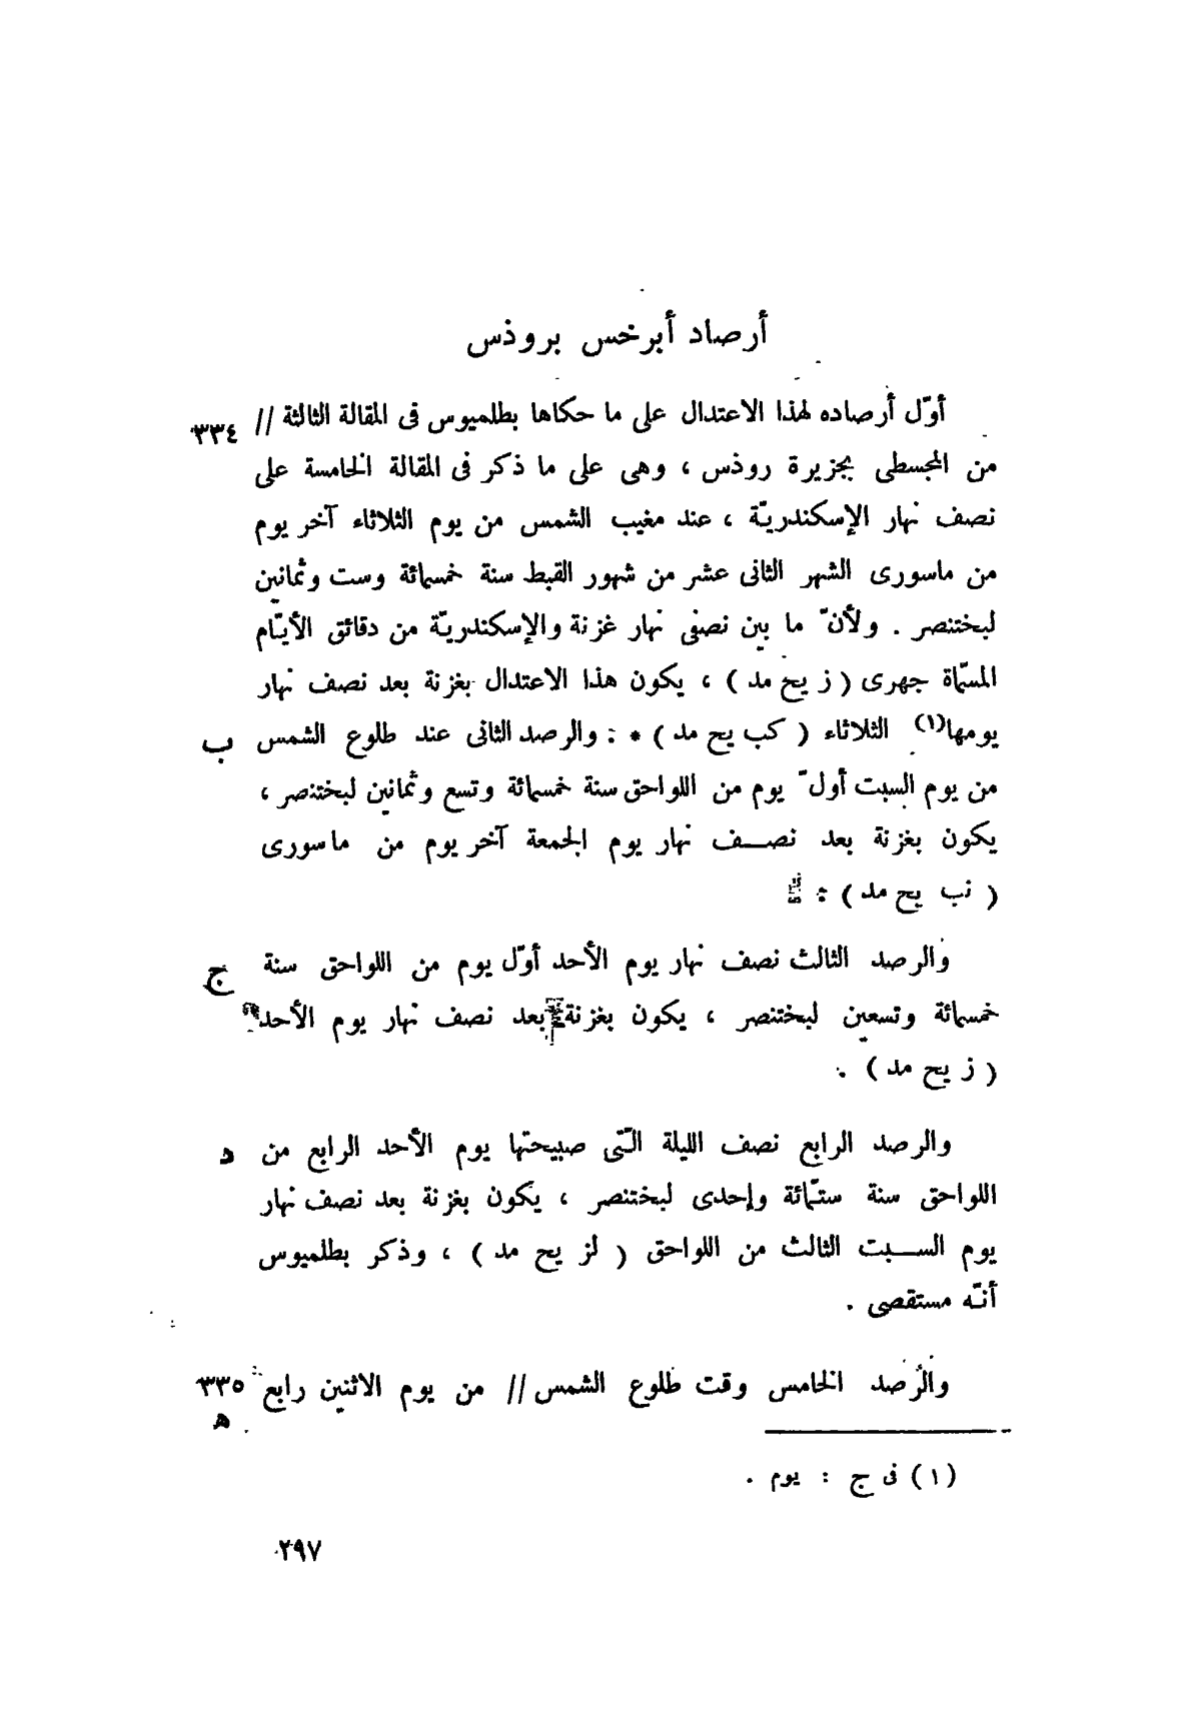 أرصاد أبرخس بروذس
أوّل أرصاده لهذا الاعتدال على ما حكاها بطلميوس فى المقالة الثالثة // ٣٣٤
من المجسطى بجزيرة روذس ، وهى على ما ذكر فى المقالة الخامسة على
نصف نهار الإسكندريّة ، عند مغيب الشمس من يوم الثلاثاء آخر يوم
من ماسورى الشهر الثانى عشر من شهور القبط سنة خمسمائة وست وثمانين
لبختنصر . ولأنّ ما بين نصفى نهار غزنة والإسكندريّة من دقائق الأيّام
المسمّاة جهرى ( ز يح مد ) ، يكون هذا الاعتدال بغزنة بعد نصف نهار
يومها(١) الثلاثاء ( كب يح مد ) * : والرصد الثانى عند طلوع الشمس ب
من يوم السبت أوّل يوم من اللواحق سنة خمسمائة وتسع وثمانين لبختنصر ،
يكون بغزنة بعد نصف نهار يوم الجمعة آخر يوم من ماسورى
( نب يح مد ) :
والرصد الثالث نصف نهار يوم الأحد أوّل يوم من اللواحق سنة ج
خمسمائة وتسعين لبختنصر ، يكون بغزنة بعد نصف نهار يوم الأحد
( ز يح مد ) .
والرصد الرابع نصف الليلة الّتى صبيحتها يوم الأحد الرابع من د
اللواحق سنة ستّمائة وإحدى لبختنصر ، يكون بغزنة بعد نصف نهار
يوم السبت الثالث من اللواحق ( لز يح مد ) ، وذكر بطلميوس
أنّه مستقصى .
والرصد الخامس وقت طلوع الشمس // من يوم الاثنين رابع ٣٣٥
ه
(١) فى ج : يوم .
٢٩٧